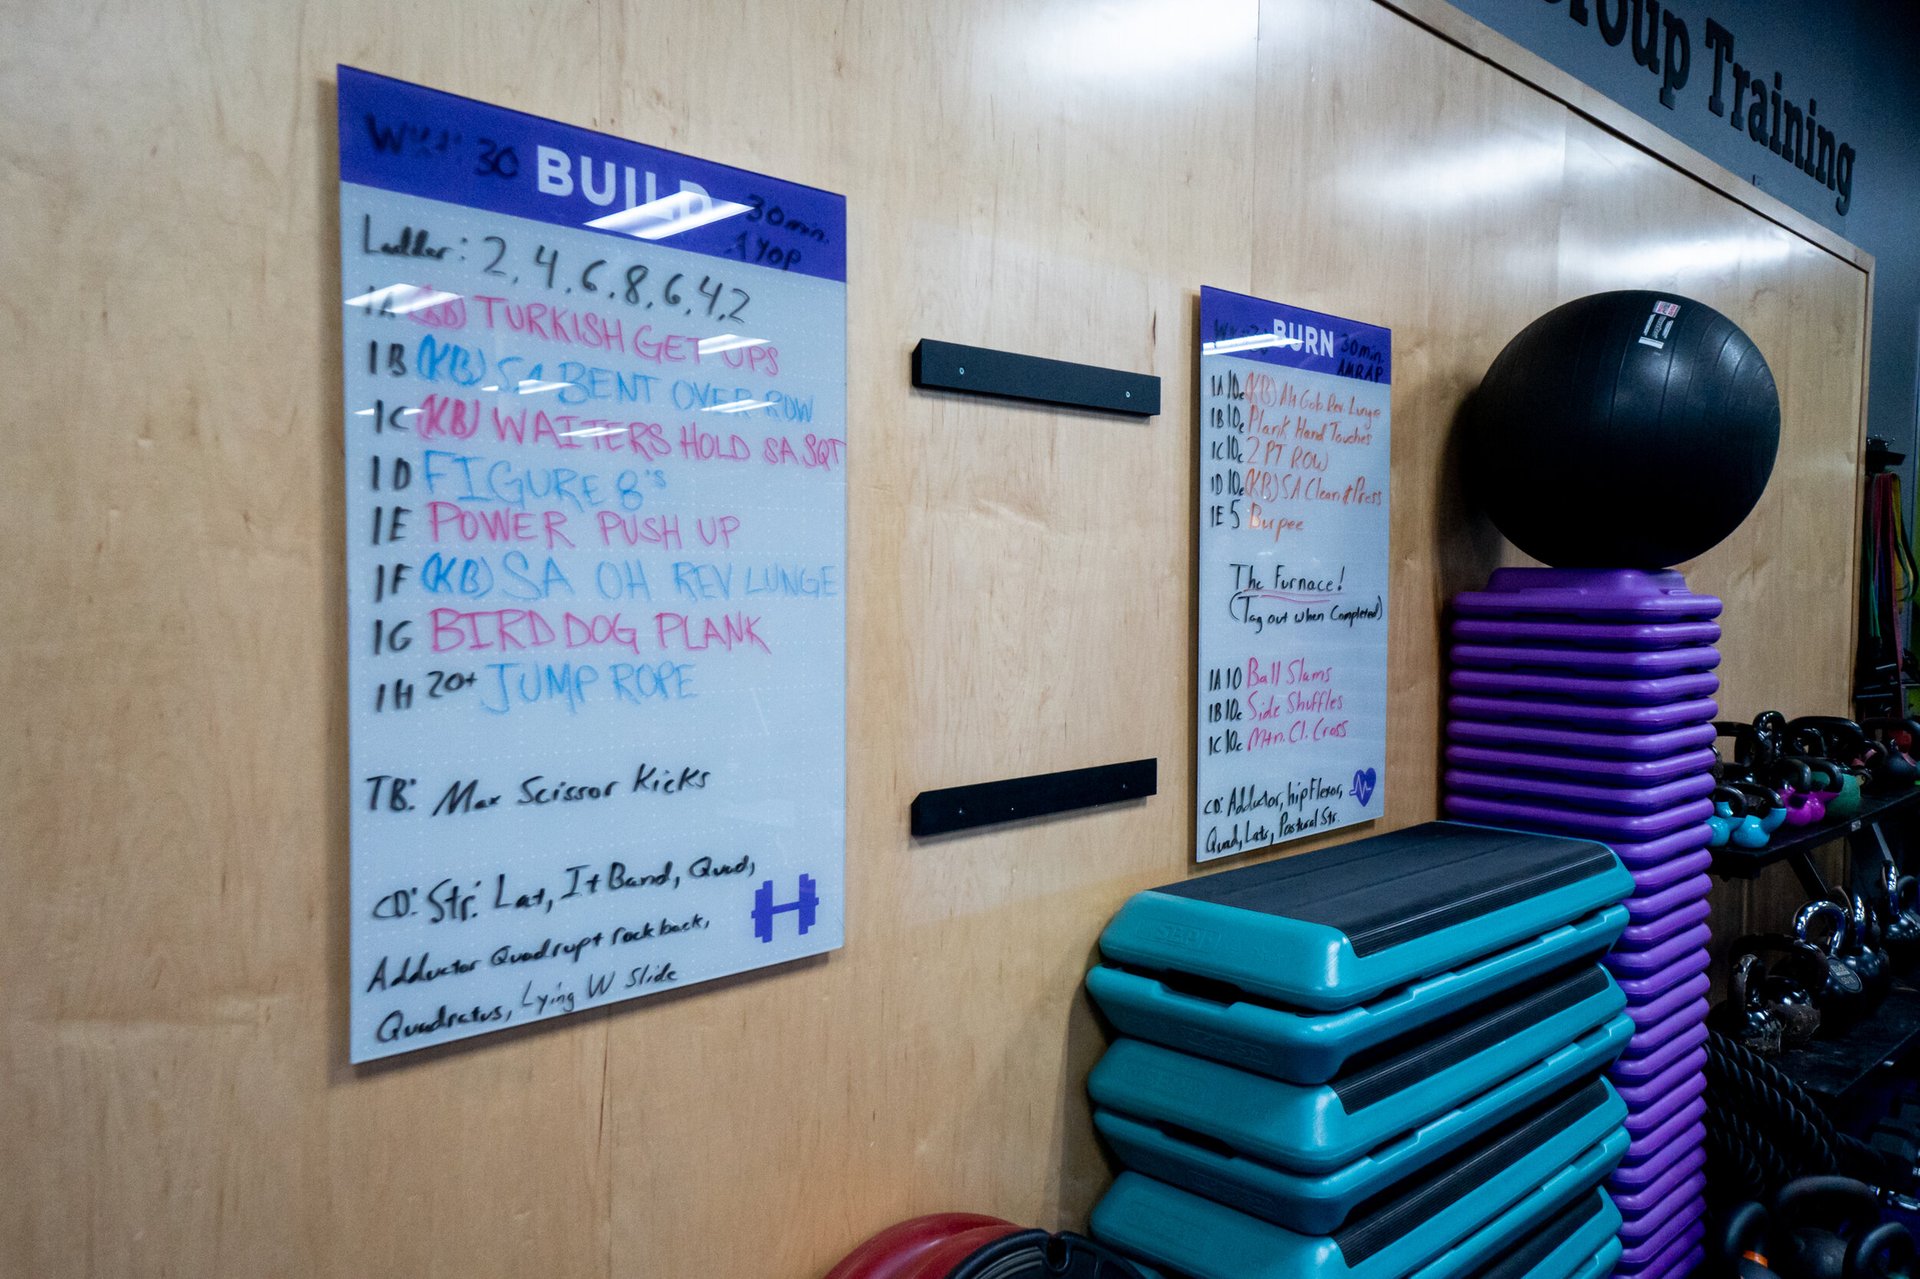 Group Training
30 BUILD 30 min.
AYOP
Ladder: 2, 4, 6, 8, 6, 4, 2
1A (KB) TURKISH GET UPS
1B (KB) SA BENT OVER ROW
1C (KB) WAITERS HOLD SA SQT
1D FIGURE 8's
1E POWER PUSH UP
1F (KB) SA OH REV LUNGE
1G BIRD DOG PLANK
1H 20+ JUMP ROPE
TB: Max Scissor Kicks
CD: Str: Lat, It Band, Quad,
Adductor Quadrupt rock back,
Quadratus, Lying W Slide
30 BURN 30 min.
AMRAP
1A 10e (KB) Alt Gob. Rev. Lunge
1B 10e Plank Hand Touches
1C 10e 2 PT ROW
1D 10e (KB) SA Clean & Press
1E 5 Burpee
The Furnace!
(Tag out when Completed)
1A 10 Ball Slams
1B 10e Side Shuffles
1C 10e Mtn. Cl. Cross
CD: Adductor, hip flexor,
Quad, Lats, Postural Str.